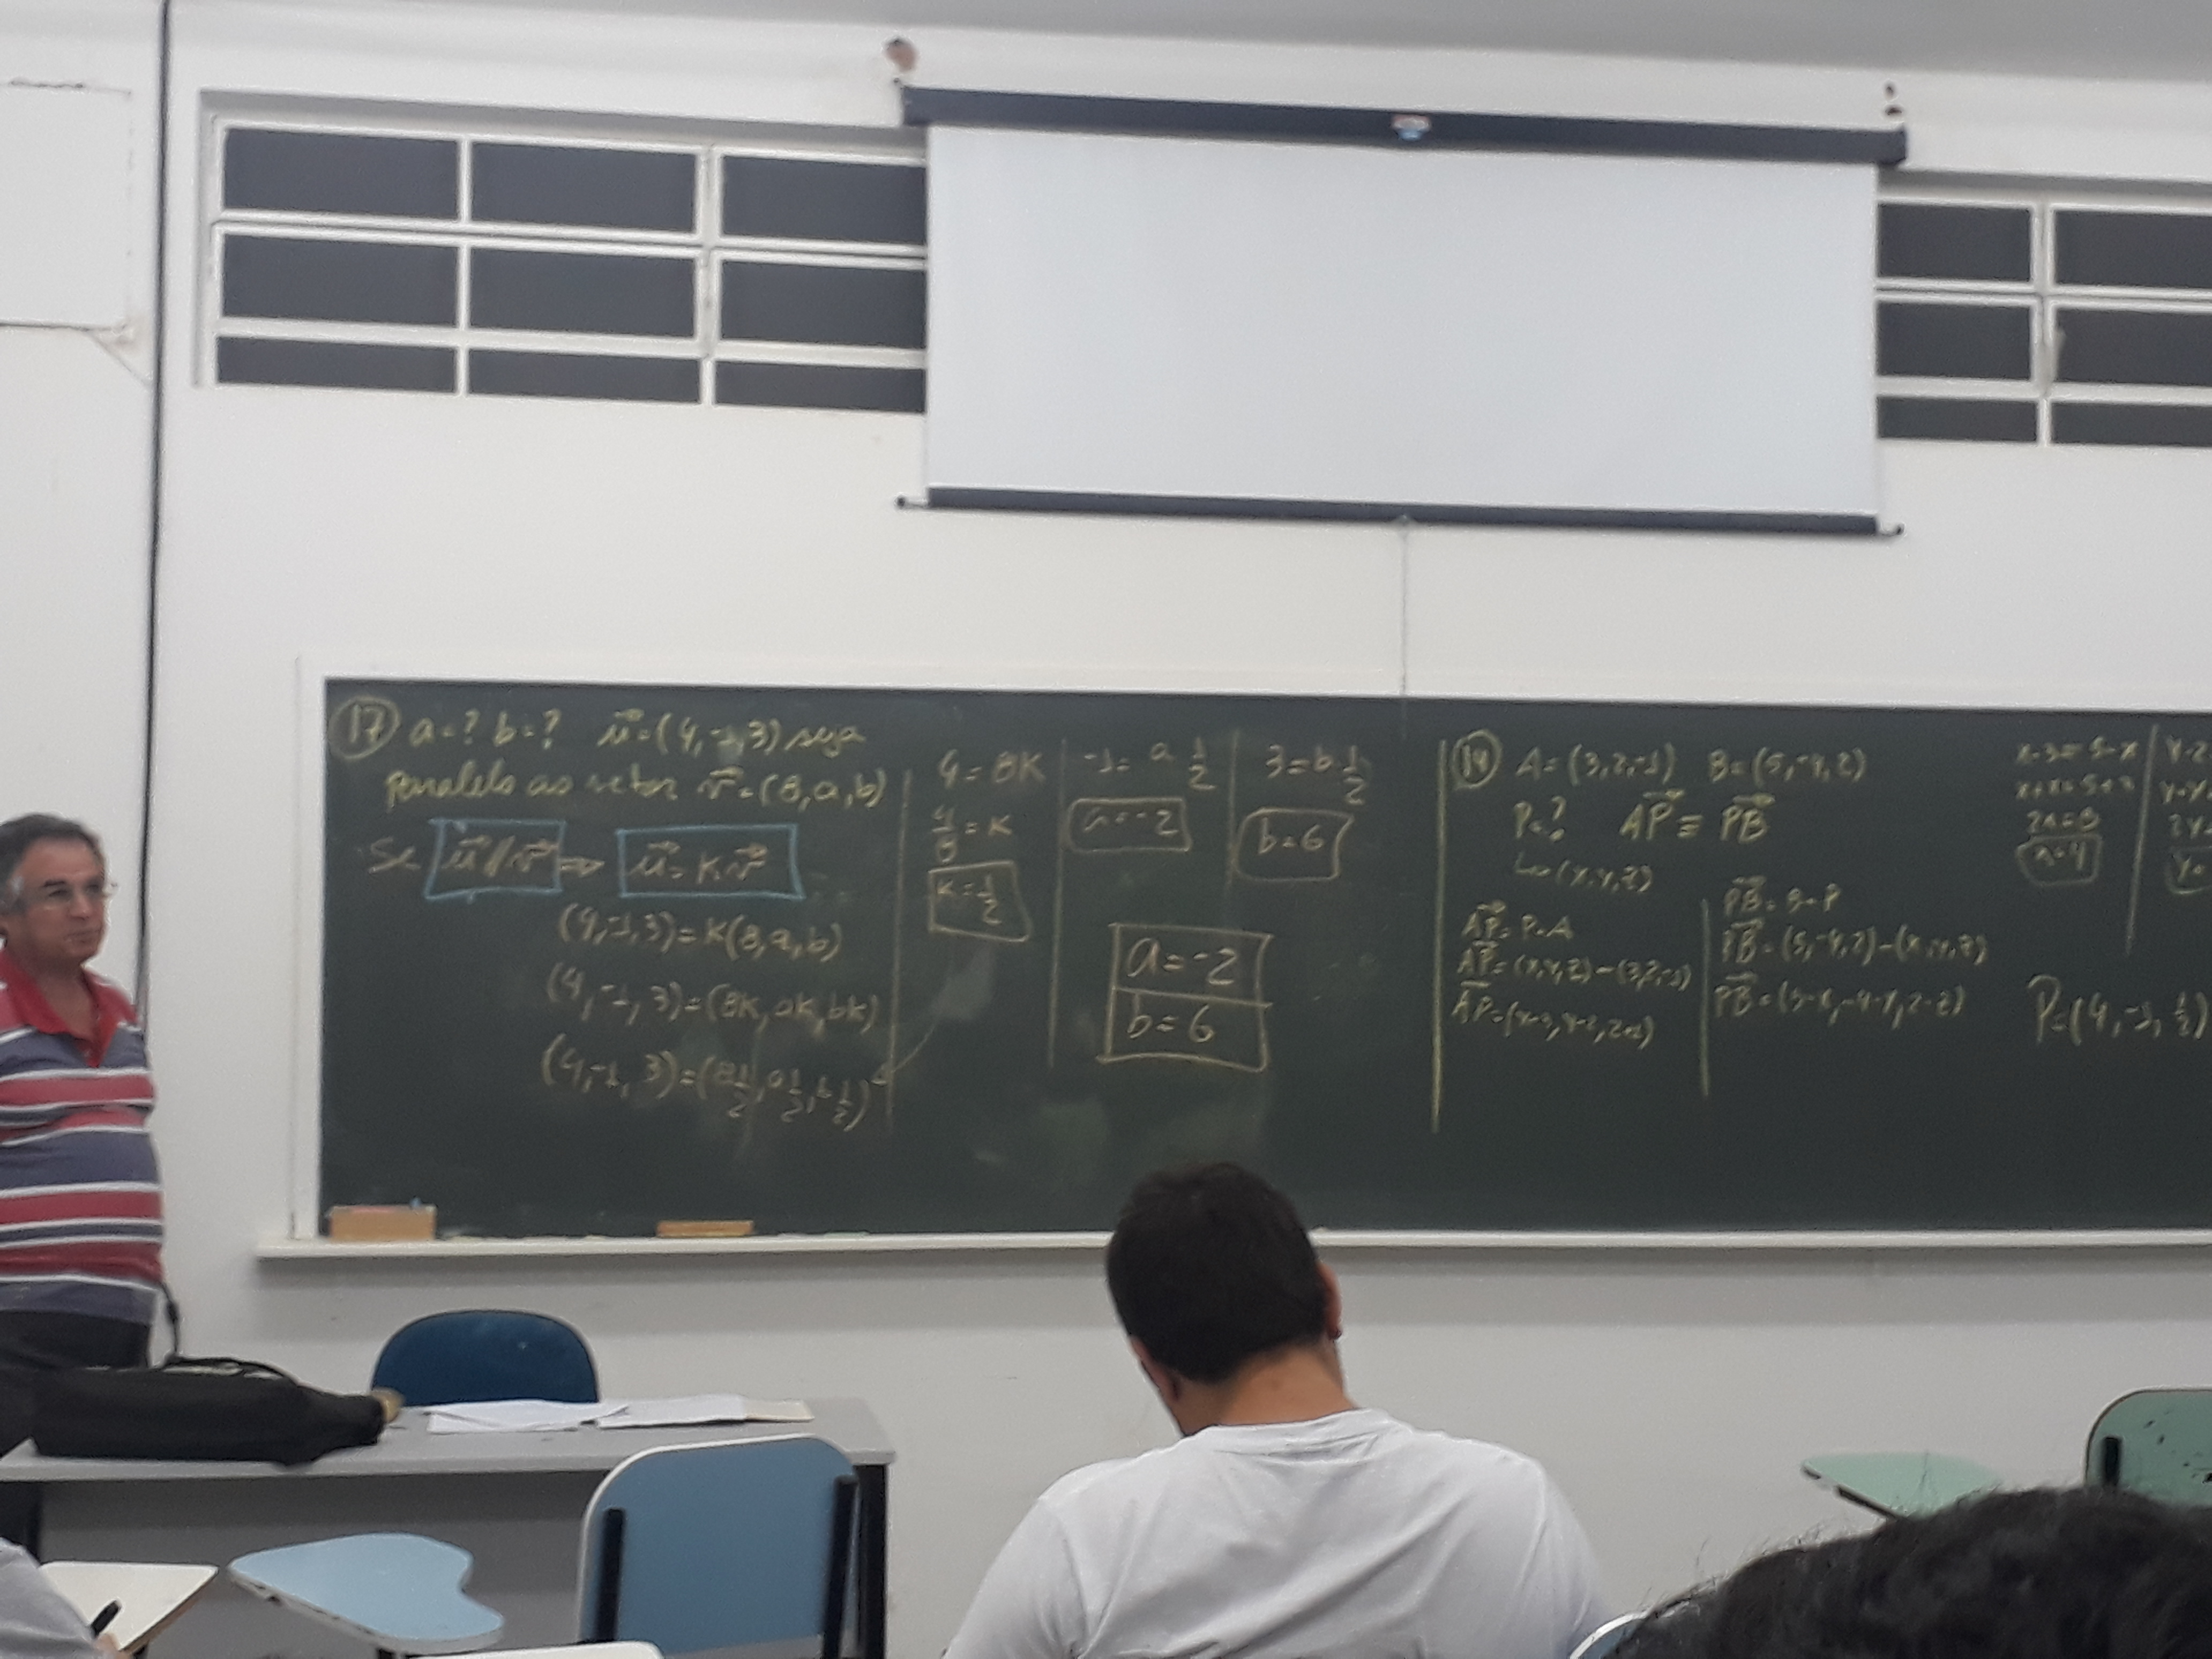 17 a=? b=? u⃗=(4,-1,3) seja
paralelo ao vetor v⃗=(8,a,b)
Se u⃗//v⃗ ⇒ u⃗=Kv⃗
(4,-1,3)=K(8,a,b)
(4,-1,3)=(8K,aK,bK)
(4,-1,3)=(8 1/2, a 1/2, b 1/2)
4=8K
4/8=K
K=1/2
-1=a 1/2
a=-2
3=b 1/2
b=6
a=-2
b=6
A=(3,2,-1) B=(5,-4,2)
P=? AP⃗ = PB⃗
(x,y,z)
AP⃗=P-A
AP⃗=(x,y,z)-(3,2,-1)
AP⃗=(x-3,y-2,z+1)
PB⃗=B-P
PB⃗=(5,-4,2)-(x,y,z)
PB⃗=(5-x,-4-y,2-z)
x-3=5-x
x+x=5+3
2x=8
x=4
y-2
y+y
2y
y=
P=(4,-1,1/2)